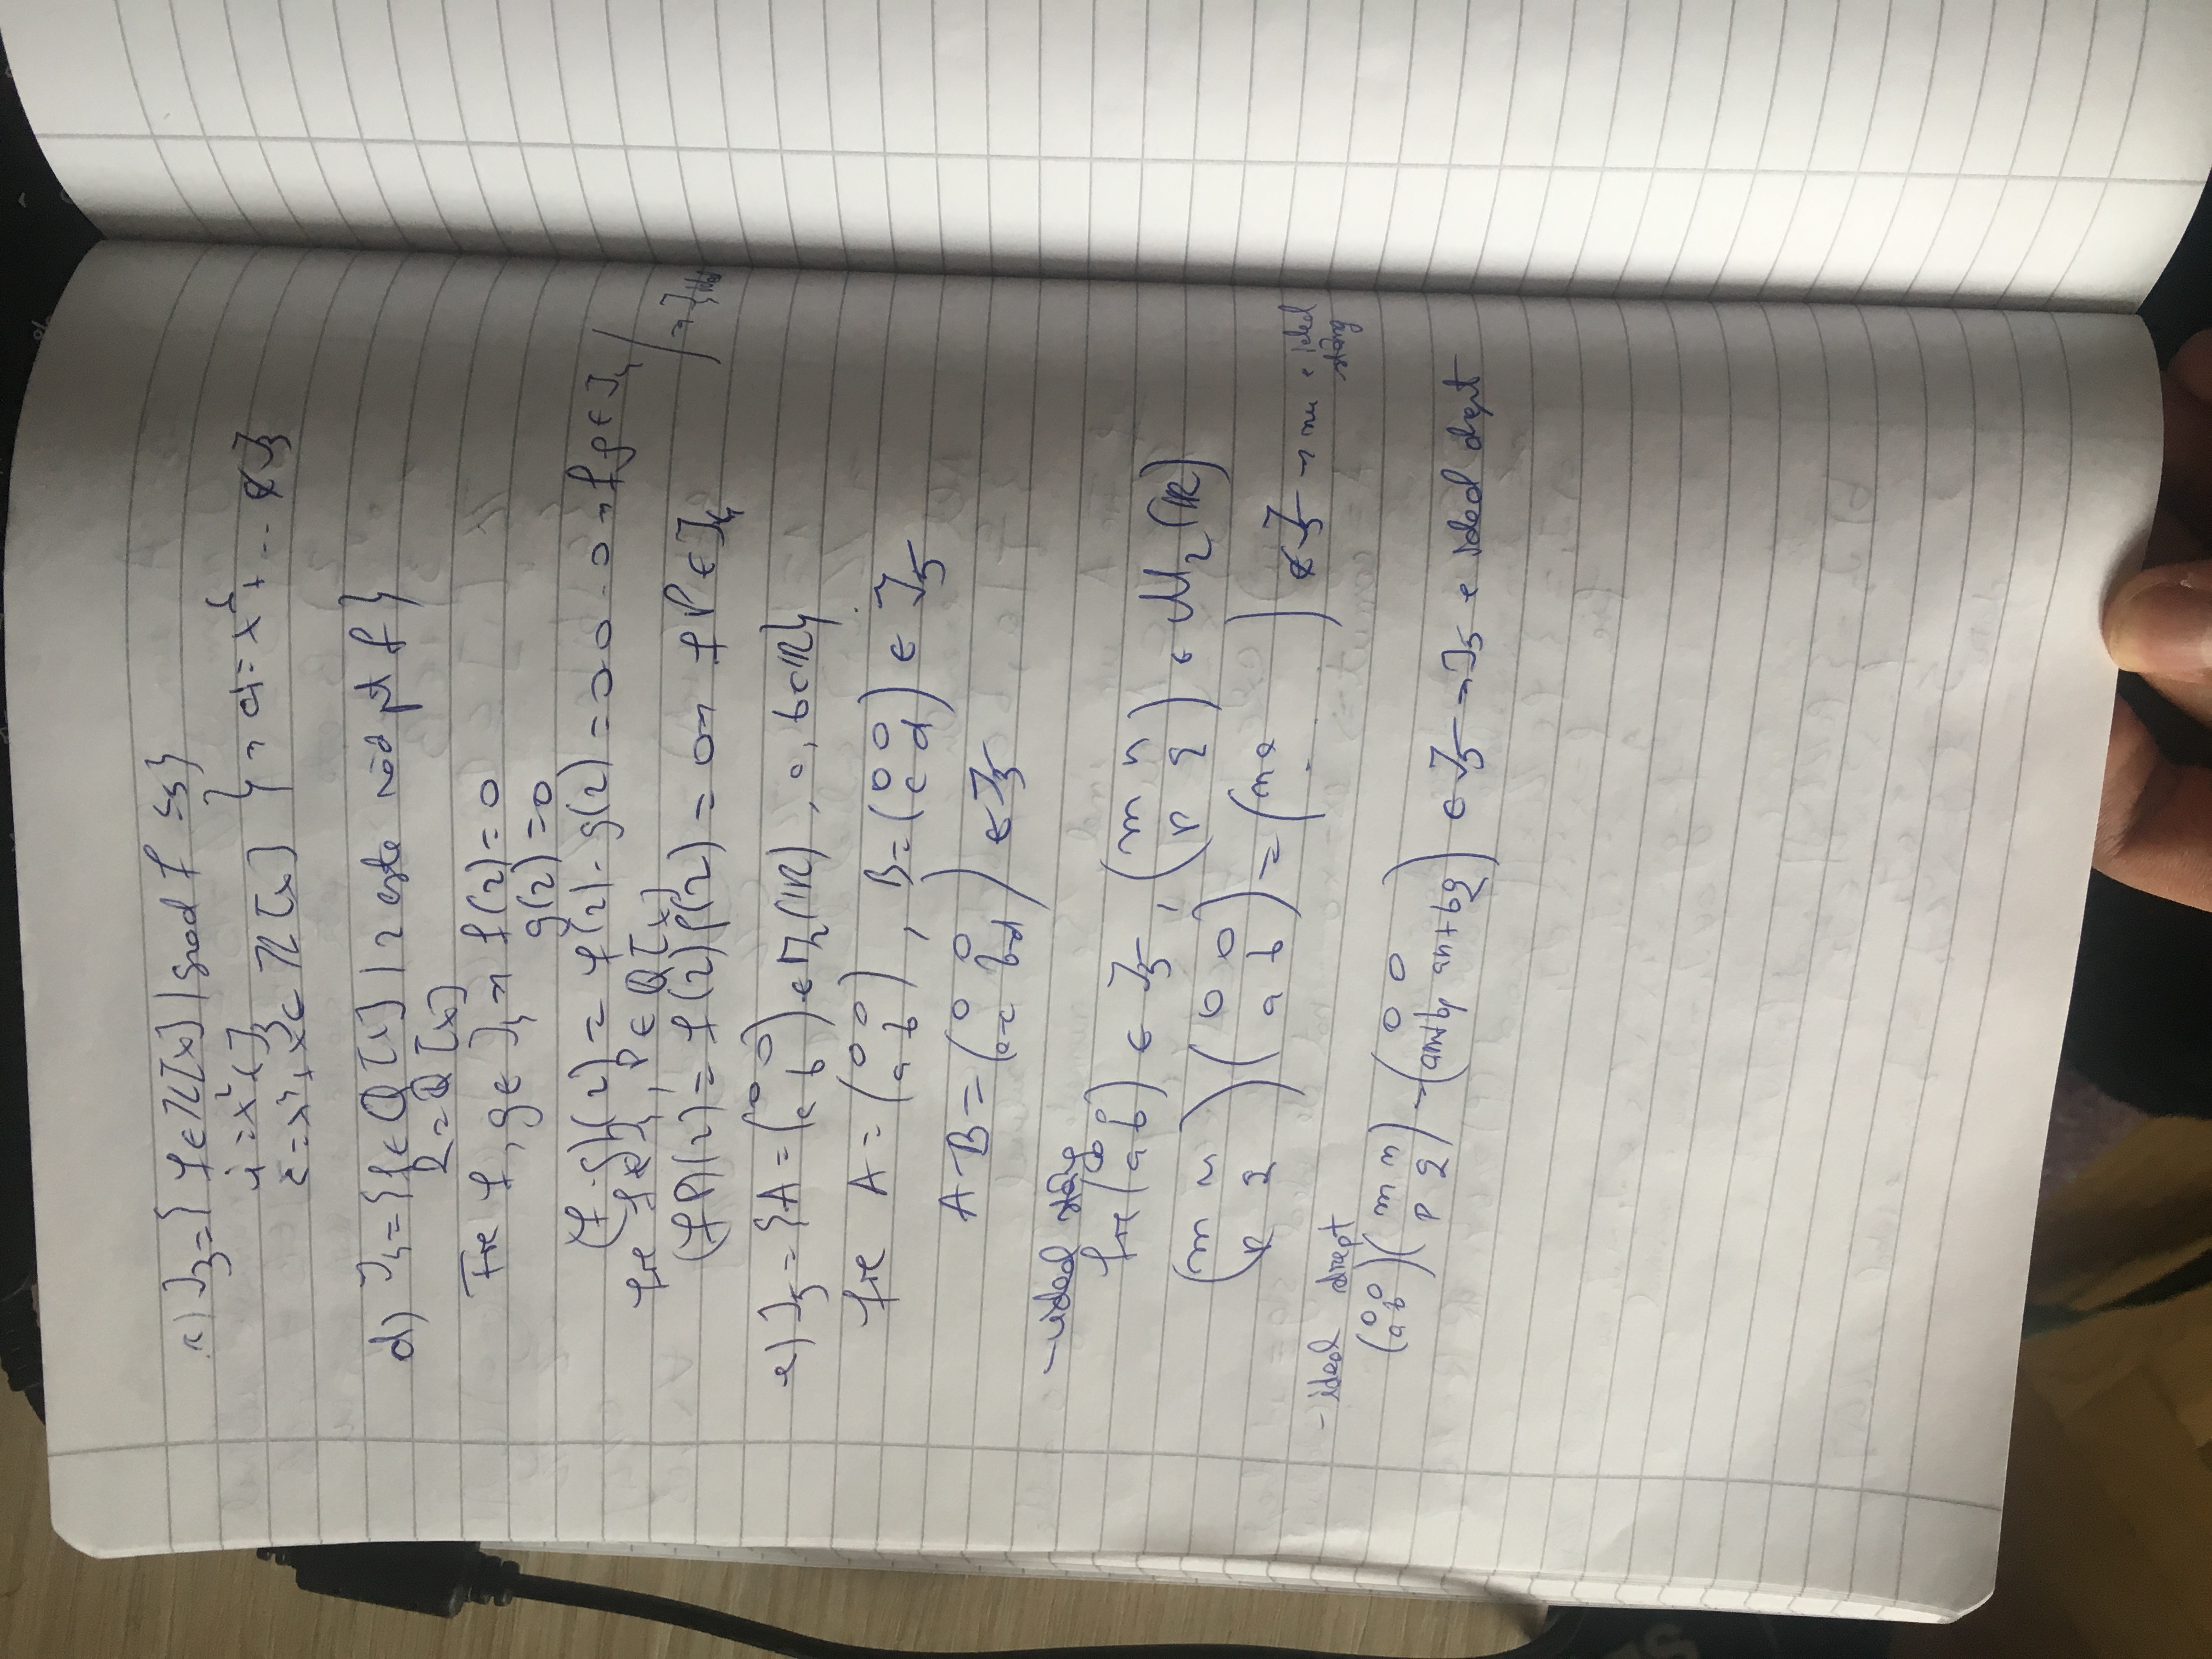 c) J₃ = { f ∈ Z[x] | grad f ≤ 3}
i = x² ∈ J₃
r = x⁴ + x ∈ Z[x] } ⇒ a = x⁶ + ... ∉ J₃
d) J₄ = {f ∈ Q[x] | 2 este răd pt f}
R = Q[x]
Fie f, g ∈ J₄ ⇒ f(2) = 0
g(2) = 0
(f·g)(2) = f(2)·g(2) = 0·0 = 0 ⇒ fg ∈ J₄
fie f ∈ J₄, P ∈ Q[x]
(fP)(2) = f(2)P(2) = 0 ⇒ fP ∈ J₄
e) J₅ = {A = (0 0 / a b) ∈ M₂(R), a, b ∈ R}
fie A = (0 0 / a b), B = (0 0 / c d) ∈ J₅
A·B = (0 0 / bc bd) ∈ J₅
- ideal stâng
fie (0 0 / a b) ∈ J₅, (m n / p q) ∈ M₂(R)
(m n / p q)(0 0 / a b) = (na . / .) ∉ J₅ ⇒ nu e ideal stâng
- ideal drept
(0 0 / a b)(m n / p q) = (0 0 / am+bp an+bq) ∈ J₅ ⇒ J₅ e ideal drept